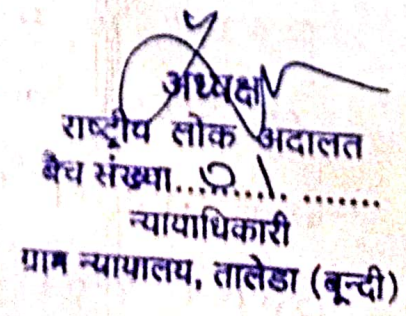 अध्यक्ष
राष्ट्रीय लोक अदालत
बैंच संख्या.................
न्यायाधिकारी
ग्राम न्यायालय, तालेडा (बून्दी)